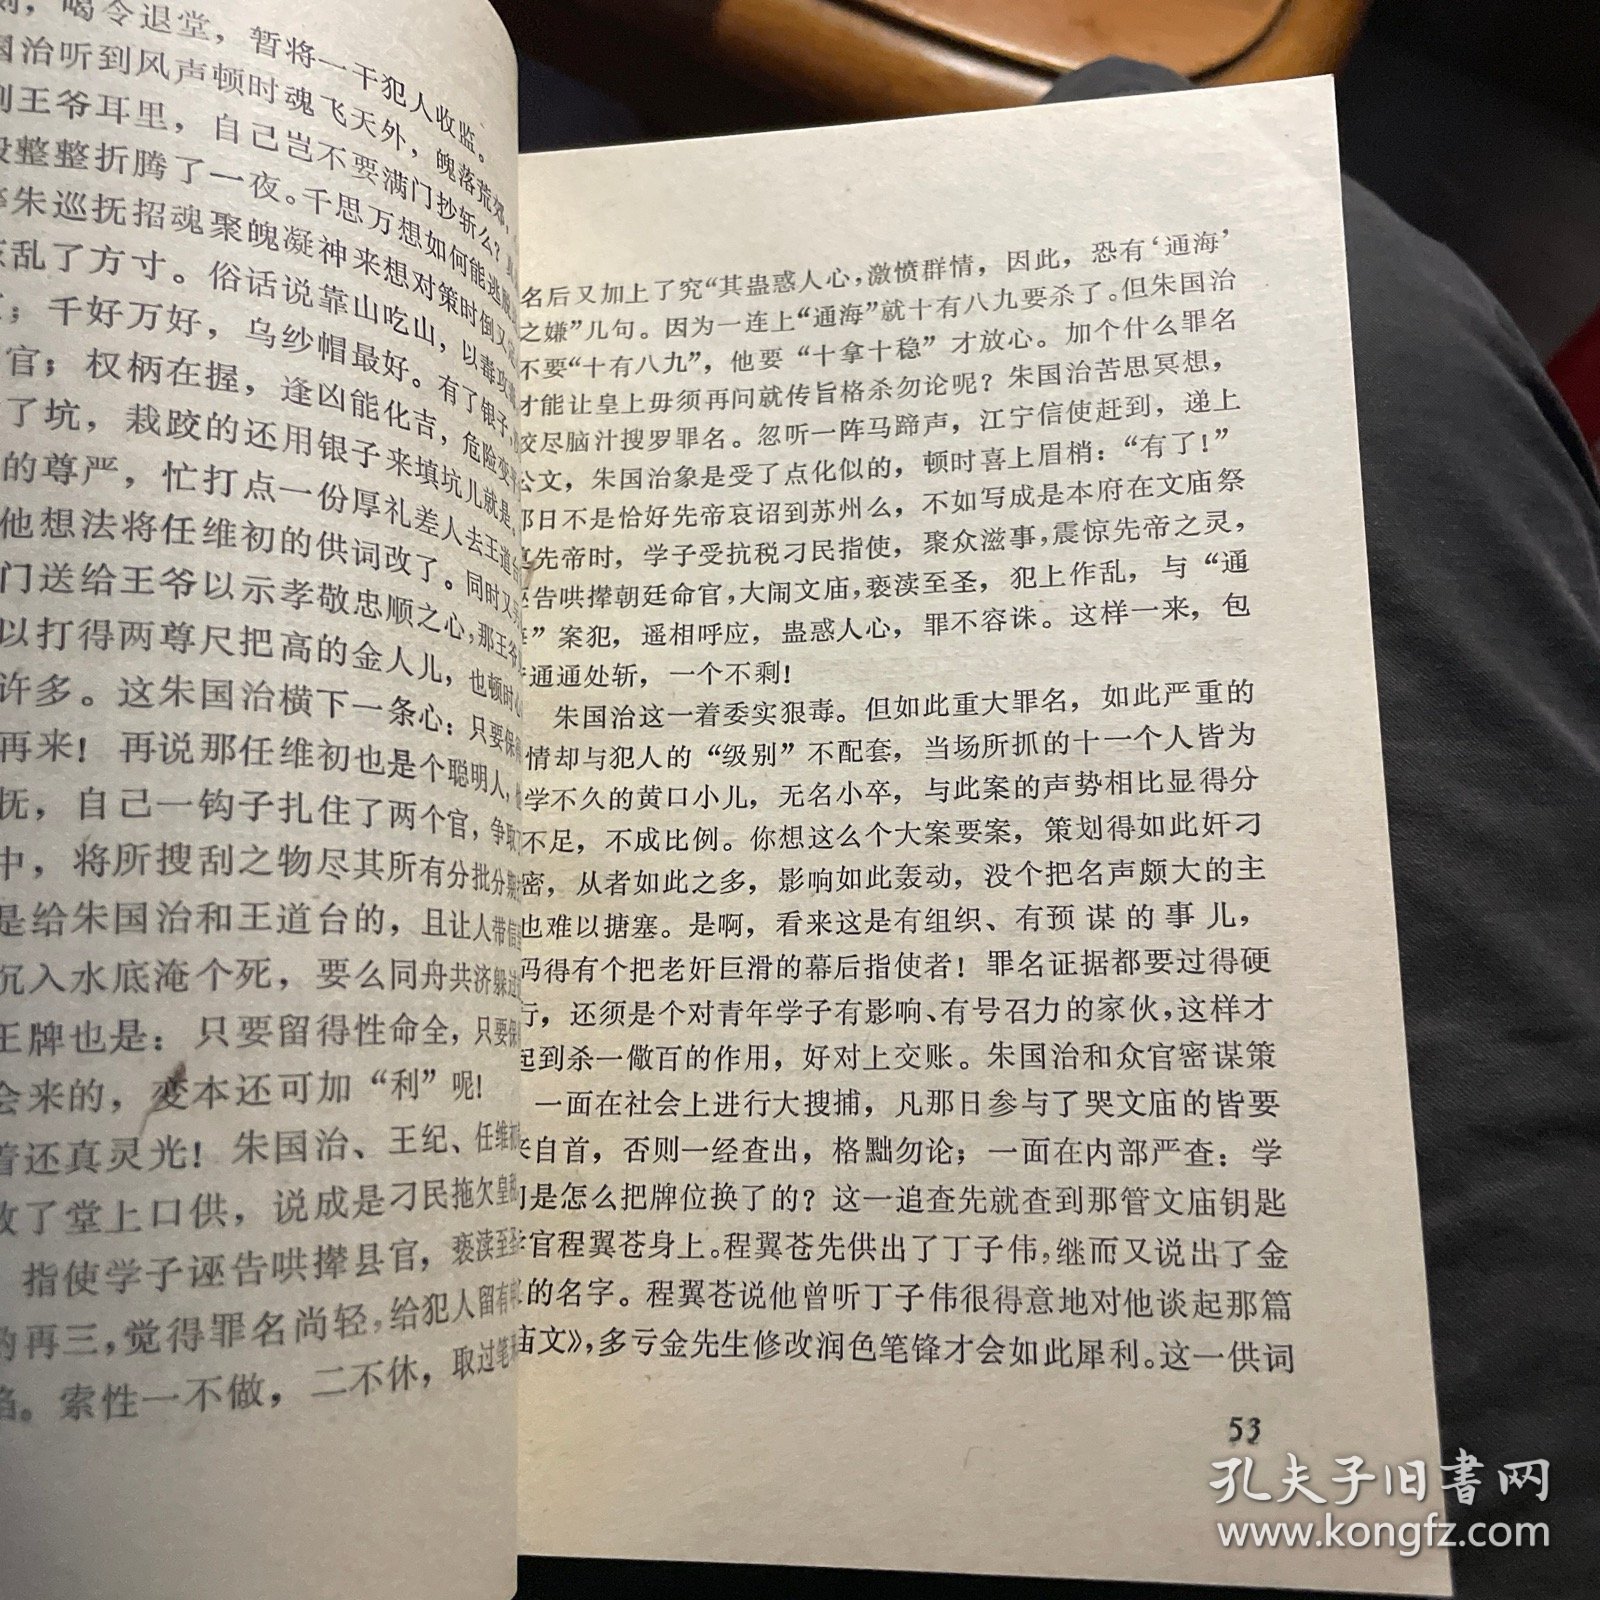 ，喝令退堂，暂将一干犯人收监。
国治听到风声顿时魂飞天外，魄落荒郊，
到王爷耳里，自己岂不要满门抄斩么？
般整整折腾了一夜。千思万想如何能逃脱
朱巡抚招魂聚魄凝神来想对策时倒又
乱了方寸。俗话说靠山吃山，以毒攻
；千好万好，乌纱帽最好。有了银子，
官；权柄在握，逢凶能化吉，危险变
了坑，栽跤的还用银子来填坑儿就是，
的尊严，忙打点一份厚礼差人去王道台
他想法将任维初的供词改了。同时又
门送给王爷以示孝敬忠顺之心，那王爷
以打得两尊尺把高的金人儿，也顿时
许多。这朱国治横下一条心：只要保
再来！再说那任维初也是个聪明人，
抚，自己一钩子扎住了两个官，争取
中，将所搜刮之物尽其所有分批分期
是给朱国治和王道台的，且让人带信
沉入水底淹个死，要么同舟共济躲过
王牌也是：只要留得性命全，只要保
会来的，变本还可加“利”呢！
着还真灵光！朱国治、王纪、任维初
改了堂上口供，说成是刁民拖欠皇
指使学子诬告哄撵县官，亵渎至圣
的再三，觉得罪名尚轻，给犯人留有
陷。索性一不做，二不休，取过笔
名后又加上了究“其蛊惑人心，激愤群情，因此，恐有‘通海’
之嫌”几句。因为一连上“通海”就十有八九要杀了。但朱国治
不要“十有八九”，他要“十拿十稳”才放心。加个什么罪名
才能让皇上毋须再问就传旨格杀勿论呢？朱国治苦思冥想，
绞尽脑汁搜罗罪名。忽听一阵马蹄声，江宁信使赶到，递上
公文，朱国治象是受了点化似的，顿时喜上眉梢：“有了！”
那日不是恰好先帝哀诏到苏州么，不如写成是本府在文庙祭
奠先帝时，学子受抗税刁民指使，聚众滋事，震惊先帝之灵，
诬告哄撵朝廷命官，大闹文庙，亵渎至圣，犯上作乱，与“通
海”案犯，遥相呼应，蛊惑人心，罪不容诛。这样一来，包
通通处斩，一个不剩！
朱国治这一着委实狠毒。但如此重大罪名，如此严重的
情却与犯人的“级别”不配套，当场所抓的十一个人皆为
学不久的黄口小儿，无名小卒，与此案的声势相比显得分
不足，不成比例。你想这么个大案要案，策划得如此奸刁
密，从者如此之多，影响如此轰动，没个把名声颇大的主
也难以搪塞。是啊，看来这是有组织、有预谋的事儿，
码得有个把老奸巨滑的幕后指使者！罪名证据都要过得硬
行，还须是个对青年学子有影响、有号召力的家伙，这样才
起到杀一儆百的作用，好对上交账。朱国治和众官密谋策
一面在社会上进行大搜捕，凡那日参与了哭文庙的皆要
来自首，否则一经查出，格黜勿论；一面在内部严查：学
的是怎么把牌位换了的？这一追查先就查到那管文庙钥匙
学官程翼苍身上。程翼苍先供出了丁子伟，继而又说出了金
的名字。程翼苍说他曾听丁子伟很得意地对他谈起那篇
庙文》，多亏金先生修改润色笔锋才会如此犀利。这一供词
53
孔夫子旧书网
www.kongfz.com